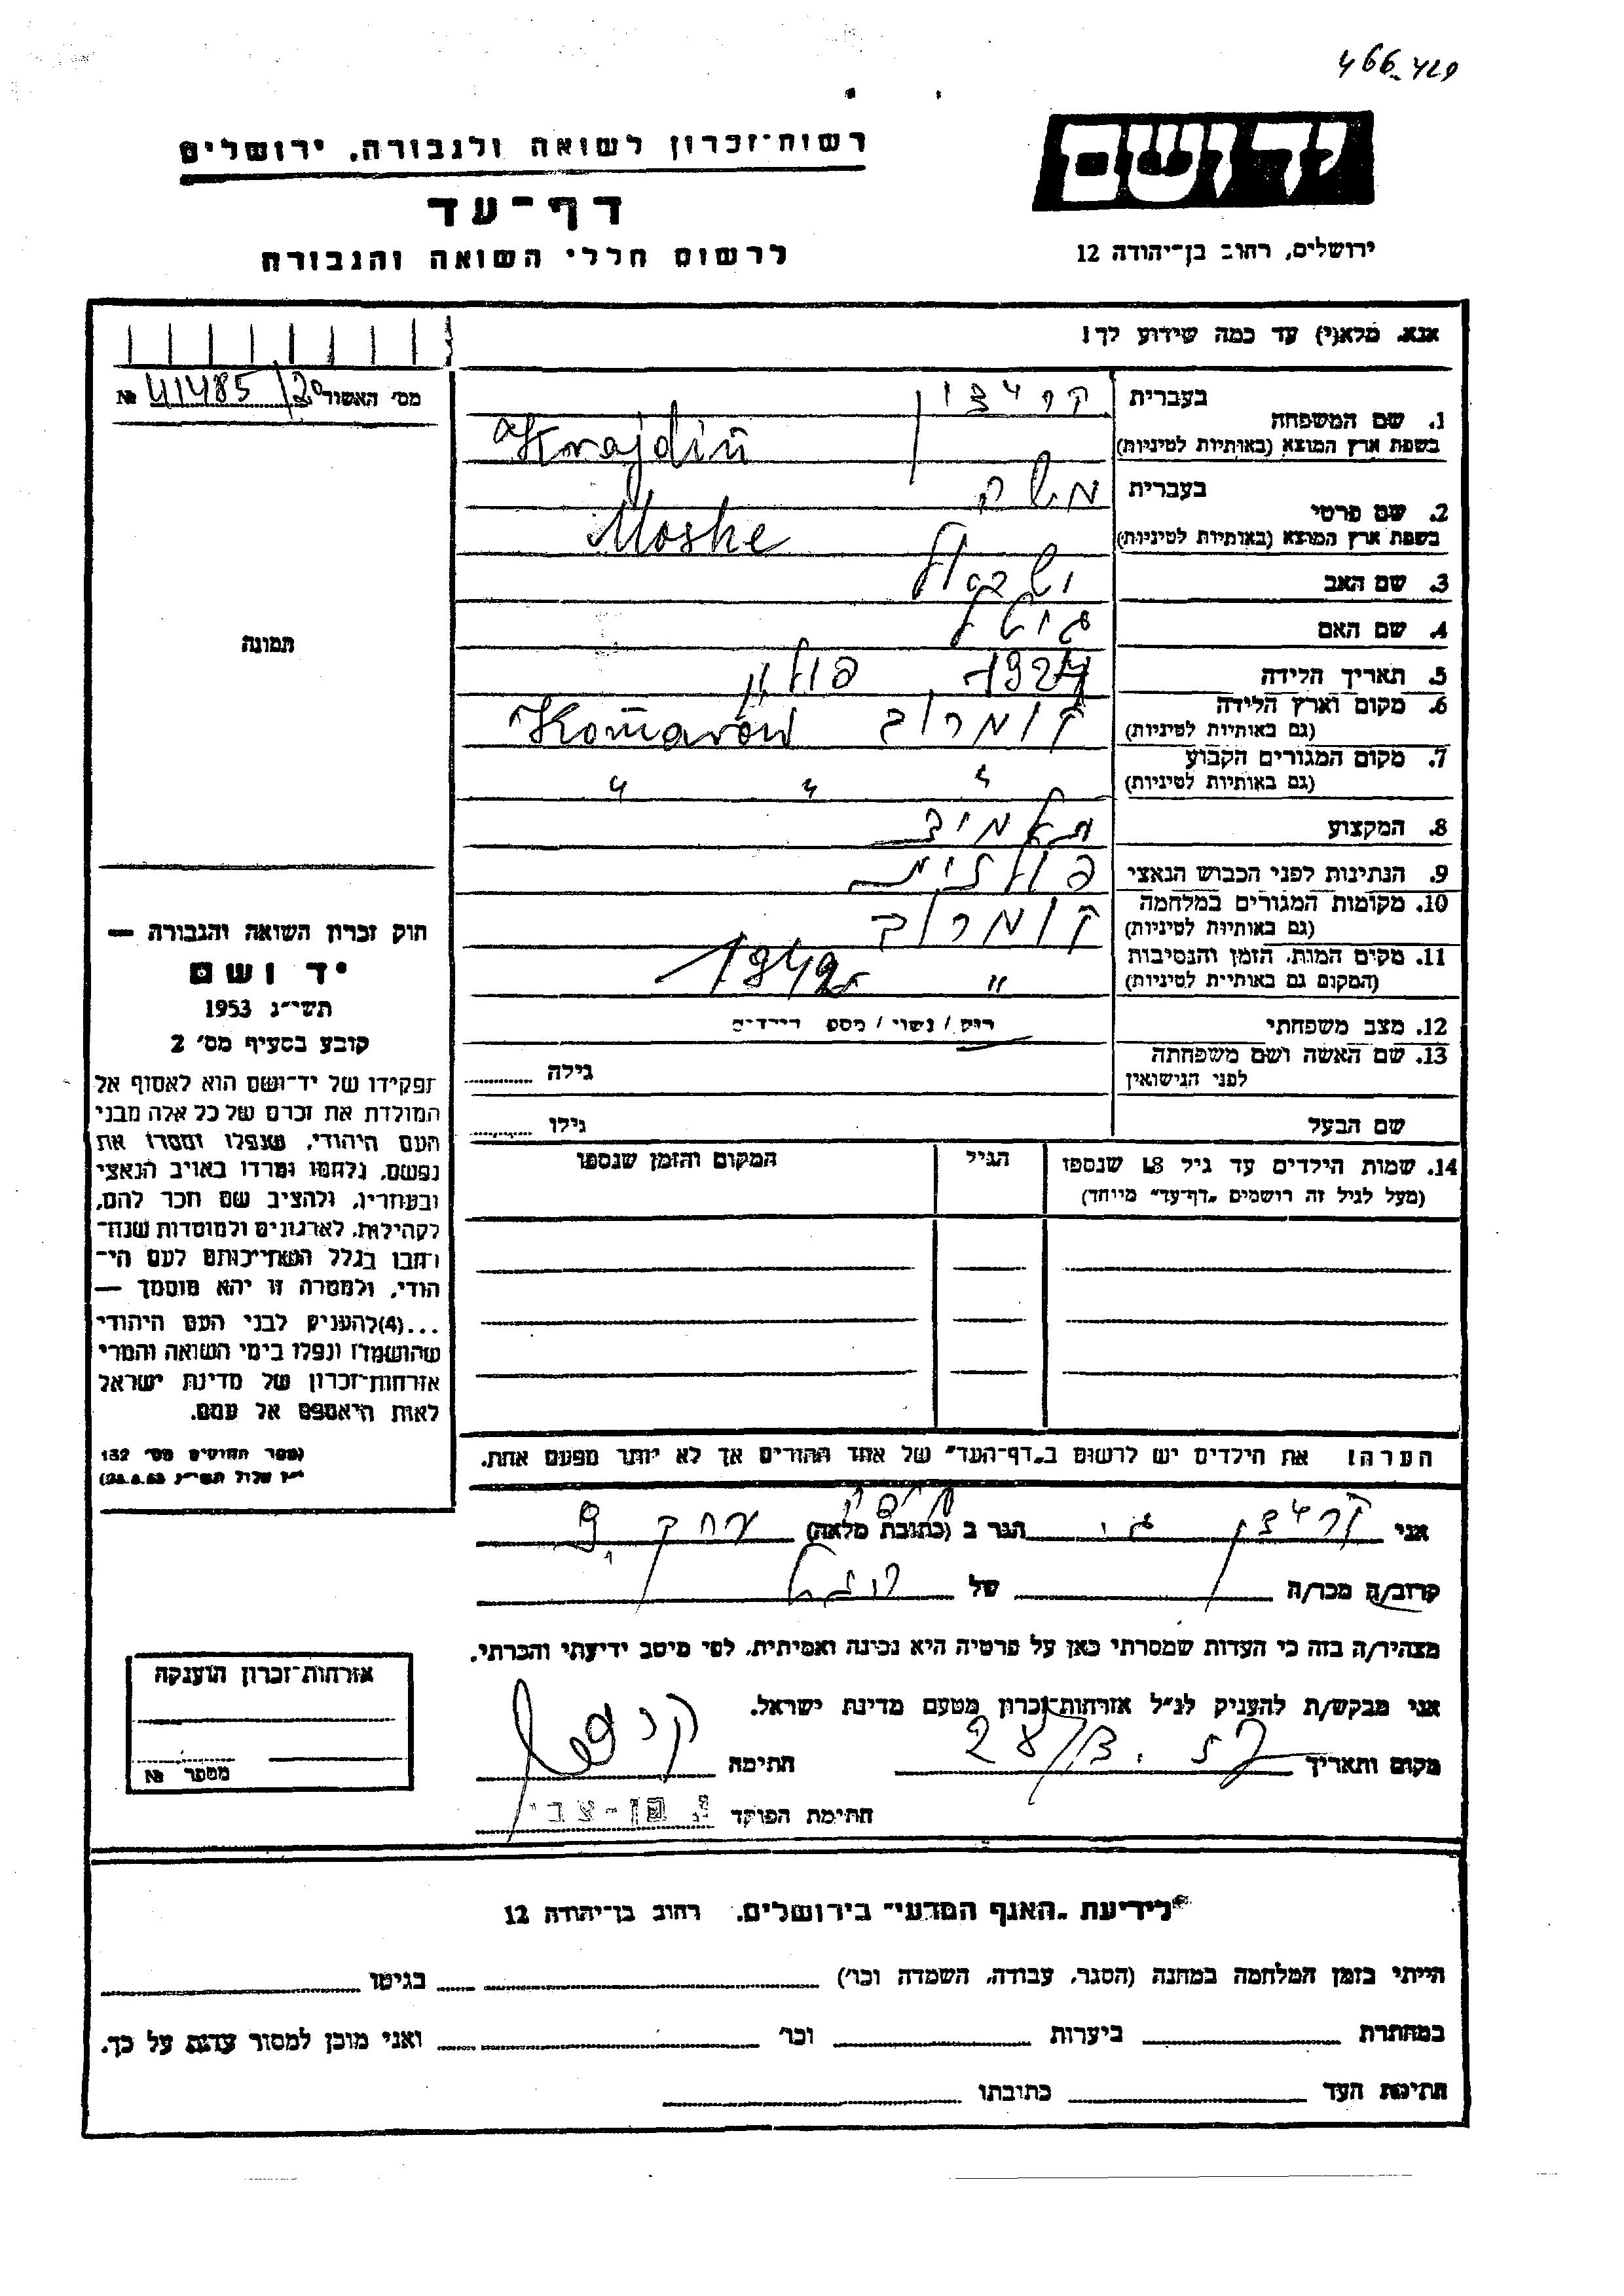 466-429
רשות־זכרון לשואה ולגבורה, ירושלים
יד ושם
דף־עד
ירושלים, רחוב בן־יהודה 12
לרשום חללי השואה והגבורה
אנא, מלא(י) עד כמה שידוע לך!
מס׳ האשור № 41485/20
תמונה
בעברית
1. שם המשפחה
בשפת ארץ המוצא (באותיות לטיניות) Krajdin
בעברית
2. שם פרטי
בשפת ארץ המוצא (באותיות לטיניות) Moshe
3. שם האב
4. שם האם
5. תאריך הלידה 1924 פולין
6. מקום וארץ הלידה
(גם באותיות לטיניות) קומרוב Komarów
7. מקום המגורים הקבוע
(גם באותיות לטיניות) " " "
8. המקצוע תלמיד
9. הנתינות לפני הכבוש הנאצי פולנית
10. מקומות המגורים במלחמה
(גם באותיות לטיניות) קומרוב
11. מקום המות, הזמן והנסיבות
(המקום גם באותיות לטיניות) " 1942
12. מצב משפחתי רווק / נשוי / מספ הילדים
13. שם האשה ושם משפחתה
לפני הנישואין גילה
שם הבעל גילו
14. שמות הילדים עד גיל 18 שנספו הגיל המקום והזמן שנספו
(מעל לגיל זה רושמים „דף־עד״ מיוחד)
חוק זכרון השואה והגבורה —
יד ושם
תשי״ג 1953
קובע בסעיף מס׳ 2
תפקידו של יד־ושם הוא לאסוף אל
המולדת את זכרם של כל אלה מבני
העם היהודי, שנפלו ומסרו את
נפשם, נלחמו ומרדו באויב הנאצי
ובעוזריו, ולהציב שם וזכר להם,
לקהילות, לארגונים ולמוסדות שנח־
רבו בגלל השתייכותם לעם הי־
הודי, ולמטרה זו יהא מוסמך —
...(4) להעניק לבני העם היהודי
שהושמדו ונפלו בימי השואה והמרי
אזרחות־זכרון של מדינת ישראל
לאות היאספם אל עמם.
(ספר החוקים מס׳ 132
י״ז אלול תשי״ג 28.8.53)
הערה! את הילדים יש לרשום ב„דף־העד״ של אחד ההורים אך לא יותר מפעם אחת.
אני הגר ב (כתובת מלאה)
קרוב/ה מכר/ה של
מצהיר/ה בזה כי העדות שמסרתי כאן על פרטיה היא נכונה ואמיתית, לפי מיטב ידיעתי והכרתי.
אני מבקש/ת להעניק לנ״ל אזרחות־זכרון מטעם מדינת ישראל.
מקום ותאריך חתימה
חתימת הפוקד י. בן-צבי
אזרחות־זכרון הוענקה
מספר №
לידיעת „האגף המדעי״ בירושלים, רחוב בן־יהודה 12
הייתי בזמן המלחמה במחנה (הסגר, עבודה, השמדה וכו׳) בגיטו
במחתרת ביערות וכו׳ ואני מוכן למסור עדות על כך.
חתימת העד כתובתו